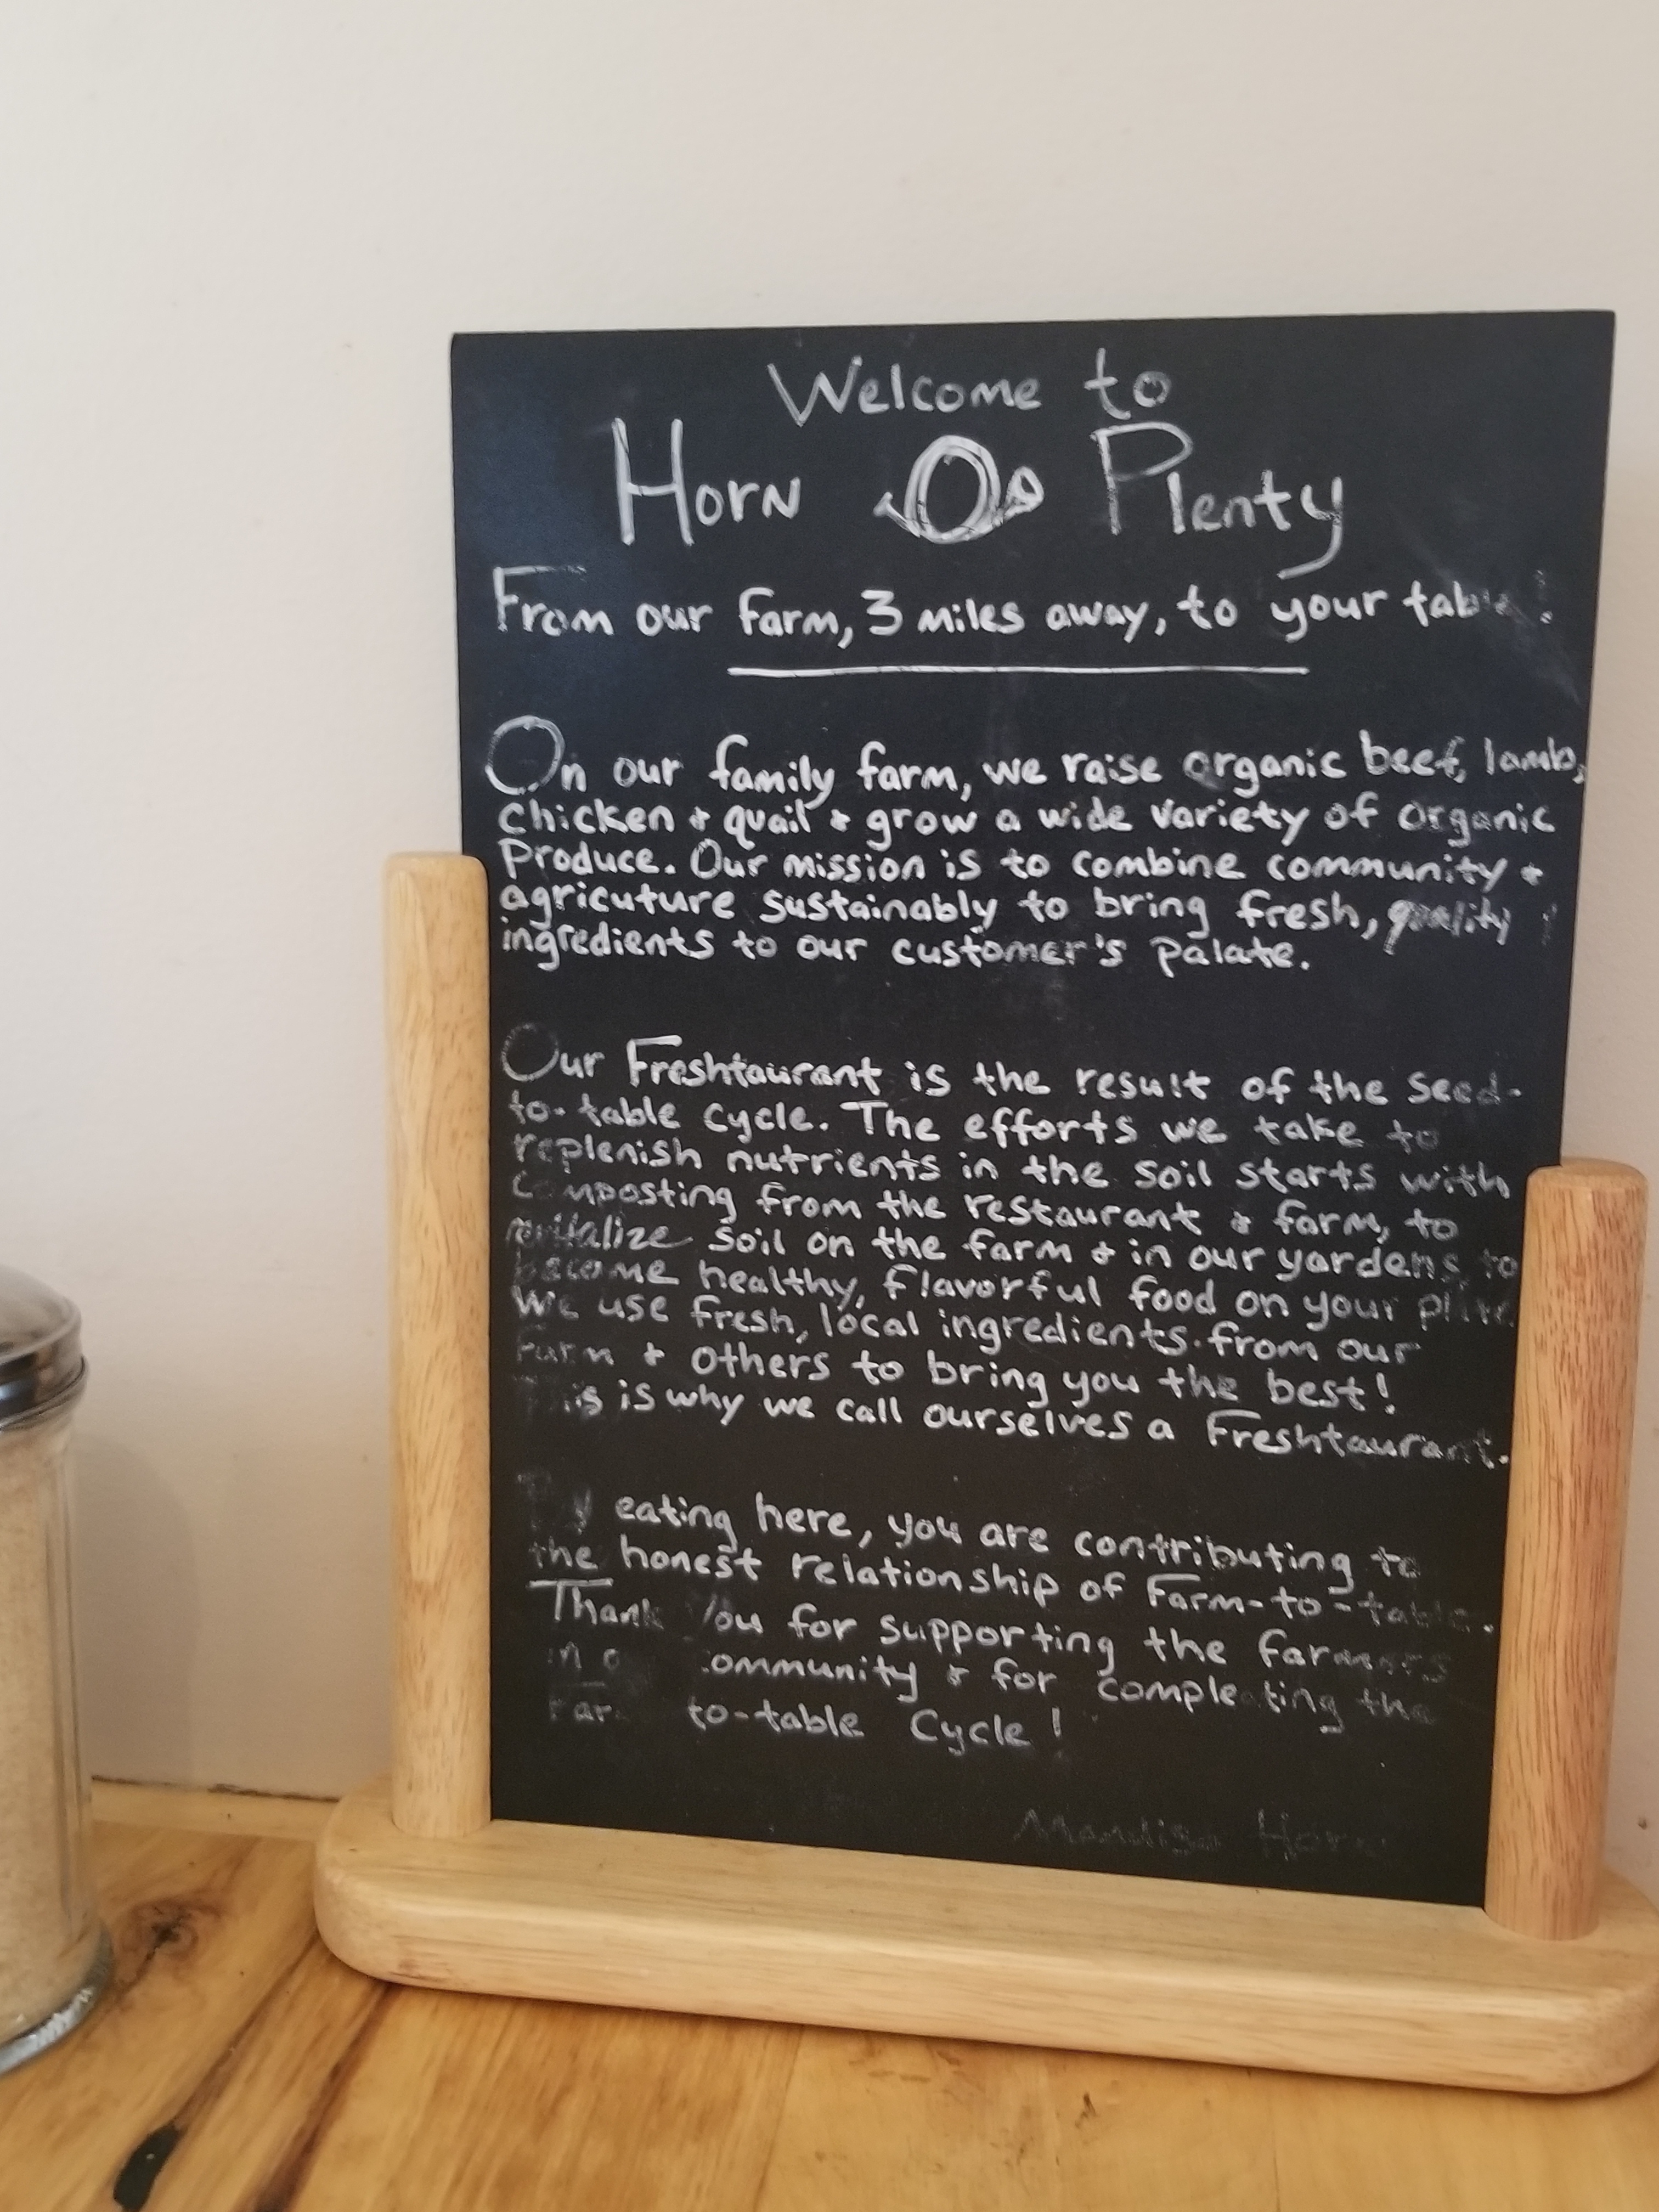 Welcome to
Horn O Plenty
From our farm, 3 miles away, to your table!
On our family farm, we raise organic beef, lamb,
chicken & quail & grow a wide variety of organic
Produce. Our mission is to combine community &
agricuture sustainably to bring fresh, quality
ingredients to our customer's palate.
Our Freshtaurant is the result of the seed-
to-table cycle. The efforts we take to
replenish nutrients in the soil starts with
composting from the restaurant & farm, to
revitalize soil on the farm & in our yardens to
become healthy, flavorful food on your plate.
We use fresh, local ingredients from our
Farm & others to bring you the best!
This is why we call ourselves a Freshtaurant.
By eating here, you are contributing to
the honest relationship of Farm-to-table.
Thank You for supporting the farmers
in community & for compleating the
Farm to-table Cycle!
Horn